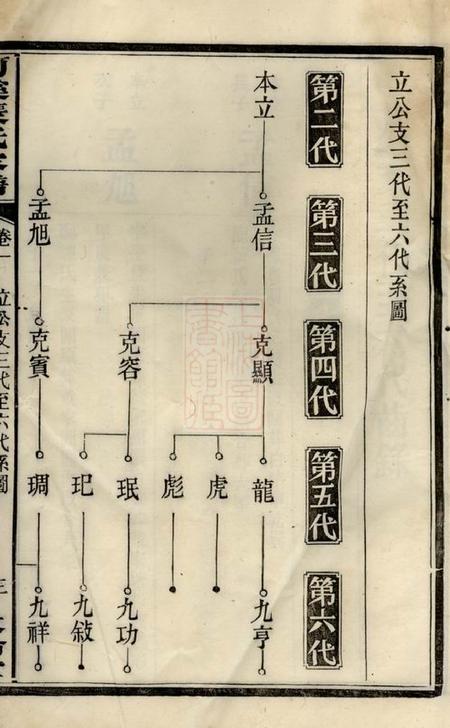 立公支三代至六代系圖
第二代
第三代
第四代
第五代
第六代
本立
孟信
孟旭
克顯
克容
克賓
龍
虎
彪
珉
玘
琱
九亨
九功
九敍
九祥
卷一
立公支三代至六代系圖
三
上海圖書館藏